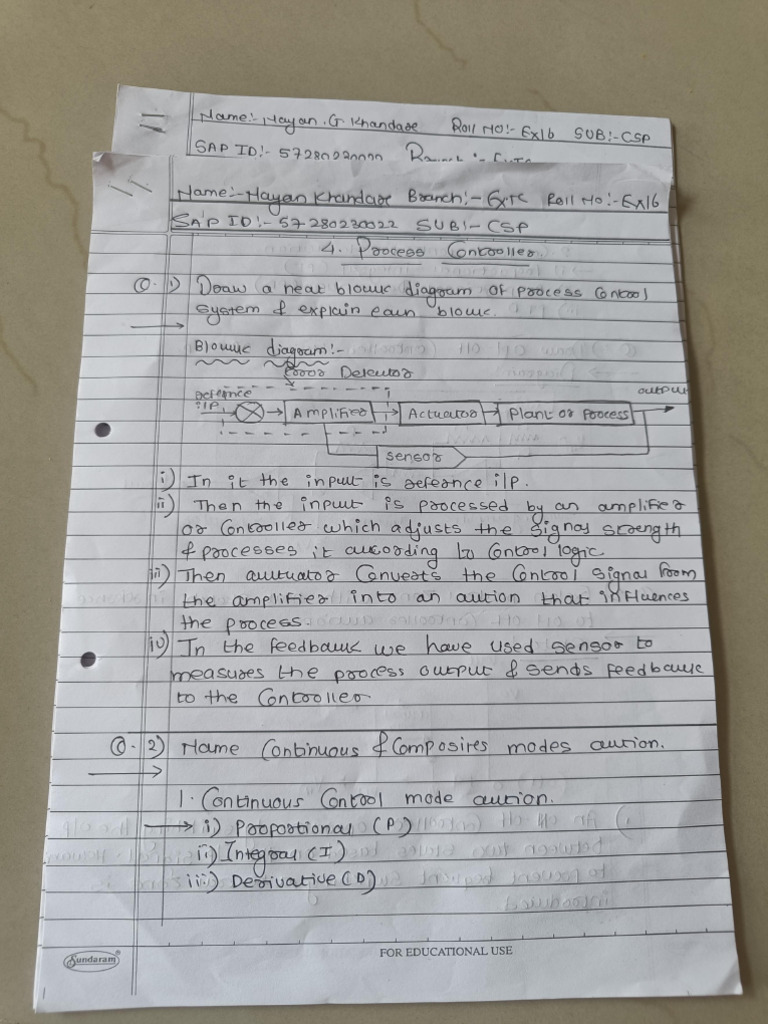 Name:- Nayan .G. Khandare Roll NO:- Ex16 SUB:- CSP
SAP ID:-
Name:- Nayan Khandare Branch:- Extc Roll No:- Ex16
SAP ID:- 57280230022 SUB:- CSP
4. Process Controller
Q. 1) Draw a neat block diagram of process Control
system & explain each block.
Block diagram:-
Error Detector
refernce output
i/p Amplifier Actuator Plant or Process
sensor
i) In it the input is refernce i/p.
ii) Then the input is processed by an amplifier
or Controller which adjusts the signal strength
& processes it according to Control logic
iii) Then actuator Converts the Control signal from
the amplifier into an action that influences
the process.
iv) In the feedback we have used sensor to
measures the process output & sends feedback
to the Controller
Q. 2) Name Continuous & Composires modes action.
1. Continuous Control mode action.
i) Proportional (P)
ii) Integral (I)
iii) Derivative (D)
Sundaram®
FOR EDUCATIONAL USE